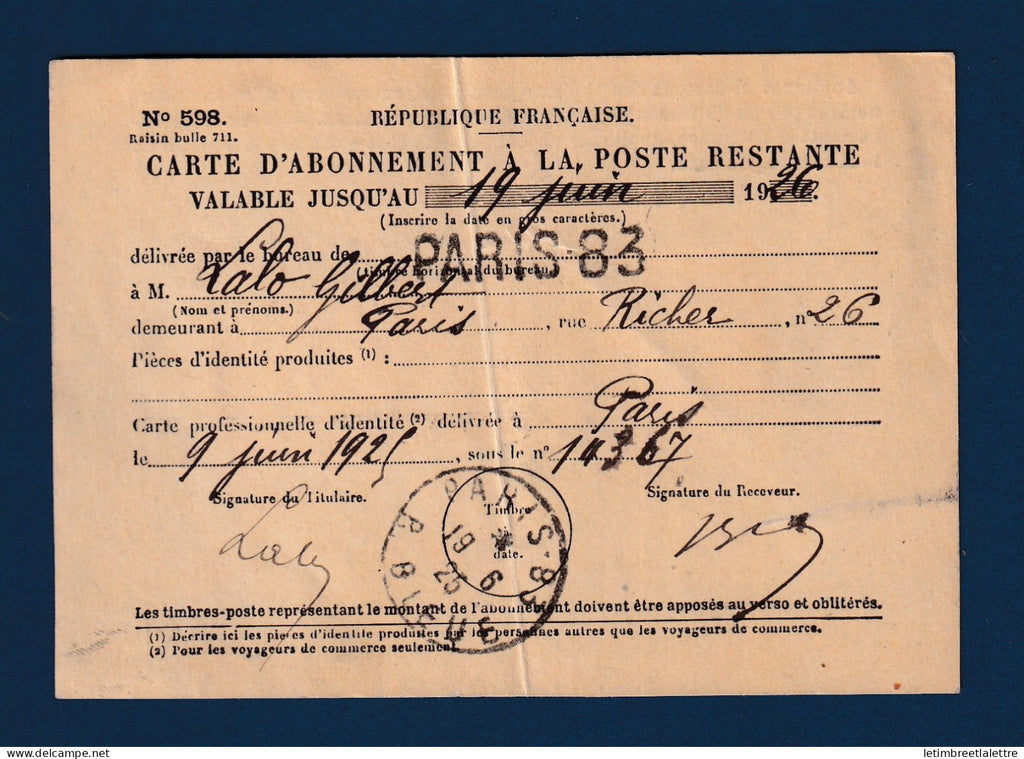 Nº 598.
Raisin bulle 711.
RÉPUBLIQUE FRANÇAISE.
CARTE D'ABONNEMENT À LA POSTE RESTANTE
VALABLE JUSQU'AU 19 juin 1926.
(Inscrire la date en gros caractères.)
délivrée par le bureau de PARIS-83
(timbre horizontal du bureau
à M. Lalo Gilbert
(Nom et prénoms.)
demeurant à Paris, rue Richer, nº 26
Pièces d'identité produites (1) :
Carte professionnelle d'identité (2) délivrée à Paris
le 9 juin 1925, sous le nº 14367
Signature du Titulaire.
Signature du Receveur.
Timbre
à
date.
PARIS-83
19 * 6
25
R. BLEUE
Lalo
Les timbres-poste représentant le montant de l'abonnement doivent être apposés au verso et oblitérés.
(1) Décrire ici les pièces d'identité produites par les personnes autres que les voyageurs de commerce.
(2) Pour les voyageurs de commerce seulement.
www.delcampe.net
letimbreetlalettre